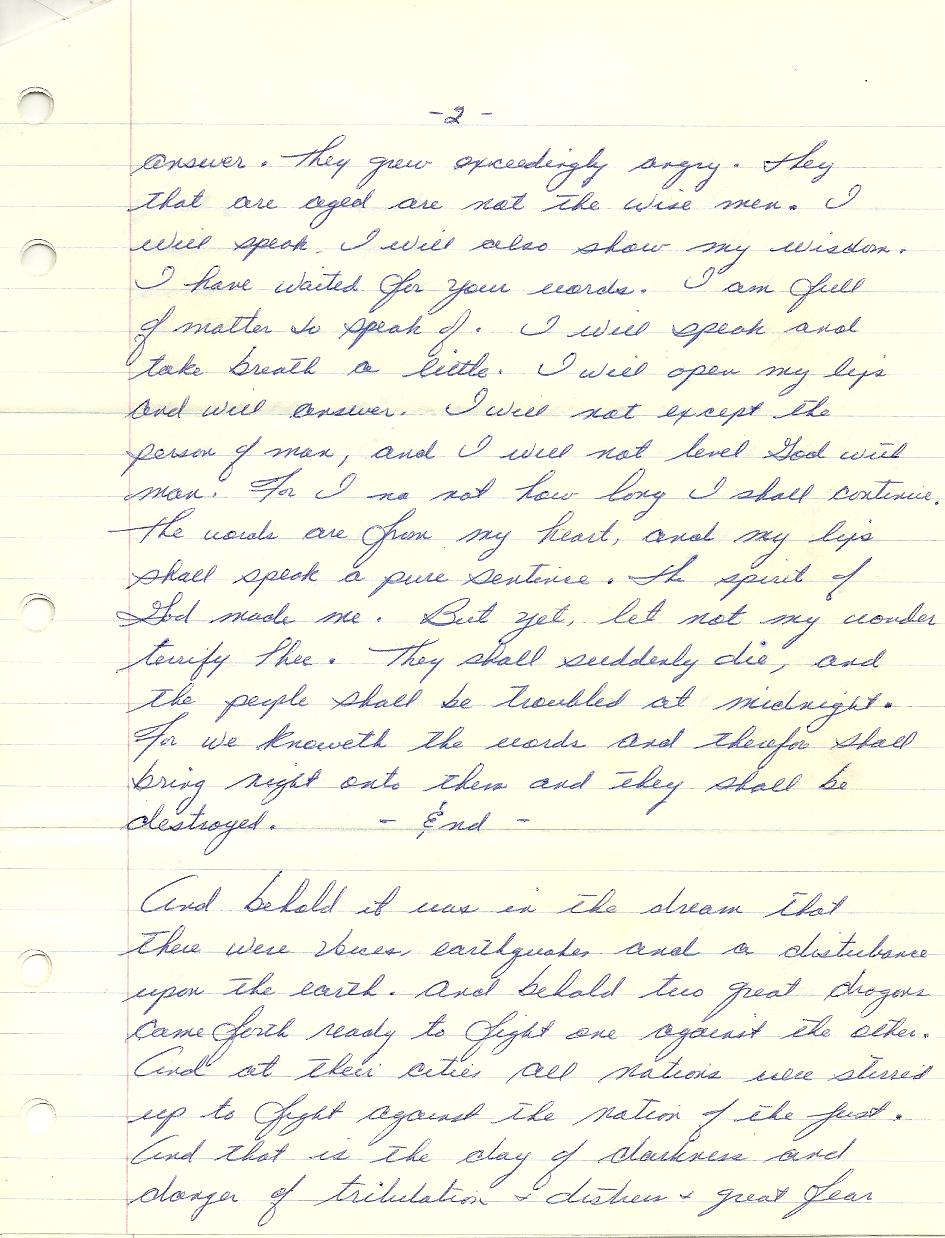 - 2 -
answer. They grew exceedingly angry. They
that are aged are not the wise men. I
will speak. I will also show my wisdom.
I have waited for your words. I am full
of matter to speak of. I will speak and
take breath a little. I will open my lips
and will answer. I will not except the
person of man, and I will not level God with
man. For I no not how long I shall continue.
The words are from my heart, and my lips
shall speak a pure sentence. The spirit of
God made me. But yet, let not my wonder
terrify thee. They shall suddenly die, and
the people shall be troubled at midnight.
For we knoweth the words and therefor shall
bring night onto them and they shall be
destroyed. - End -
And behold it was in the dream that
there were voices, earthquakes and a disturbance
upon the earth. And behold two great dragons
came forth ready to fight one against the other.
And at their cities all nations were stirred
up to fight against the nation of the just.
And that is the day of darkness and
danger of tribulation + distress + great fear